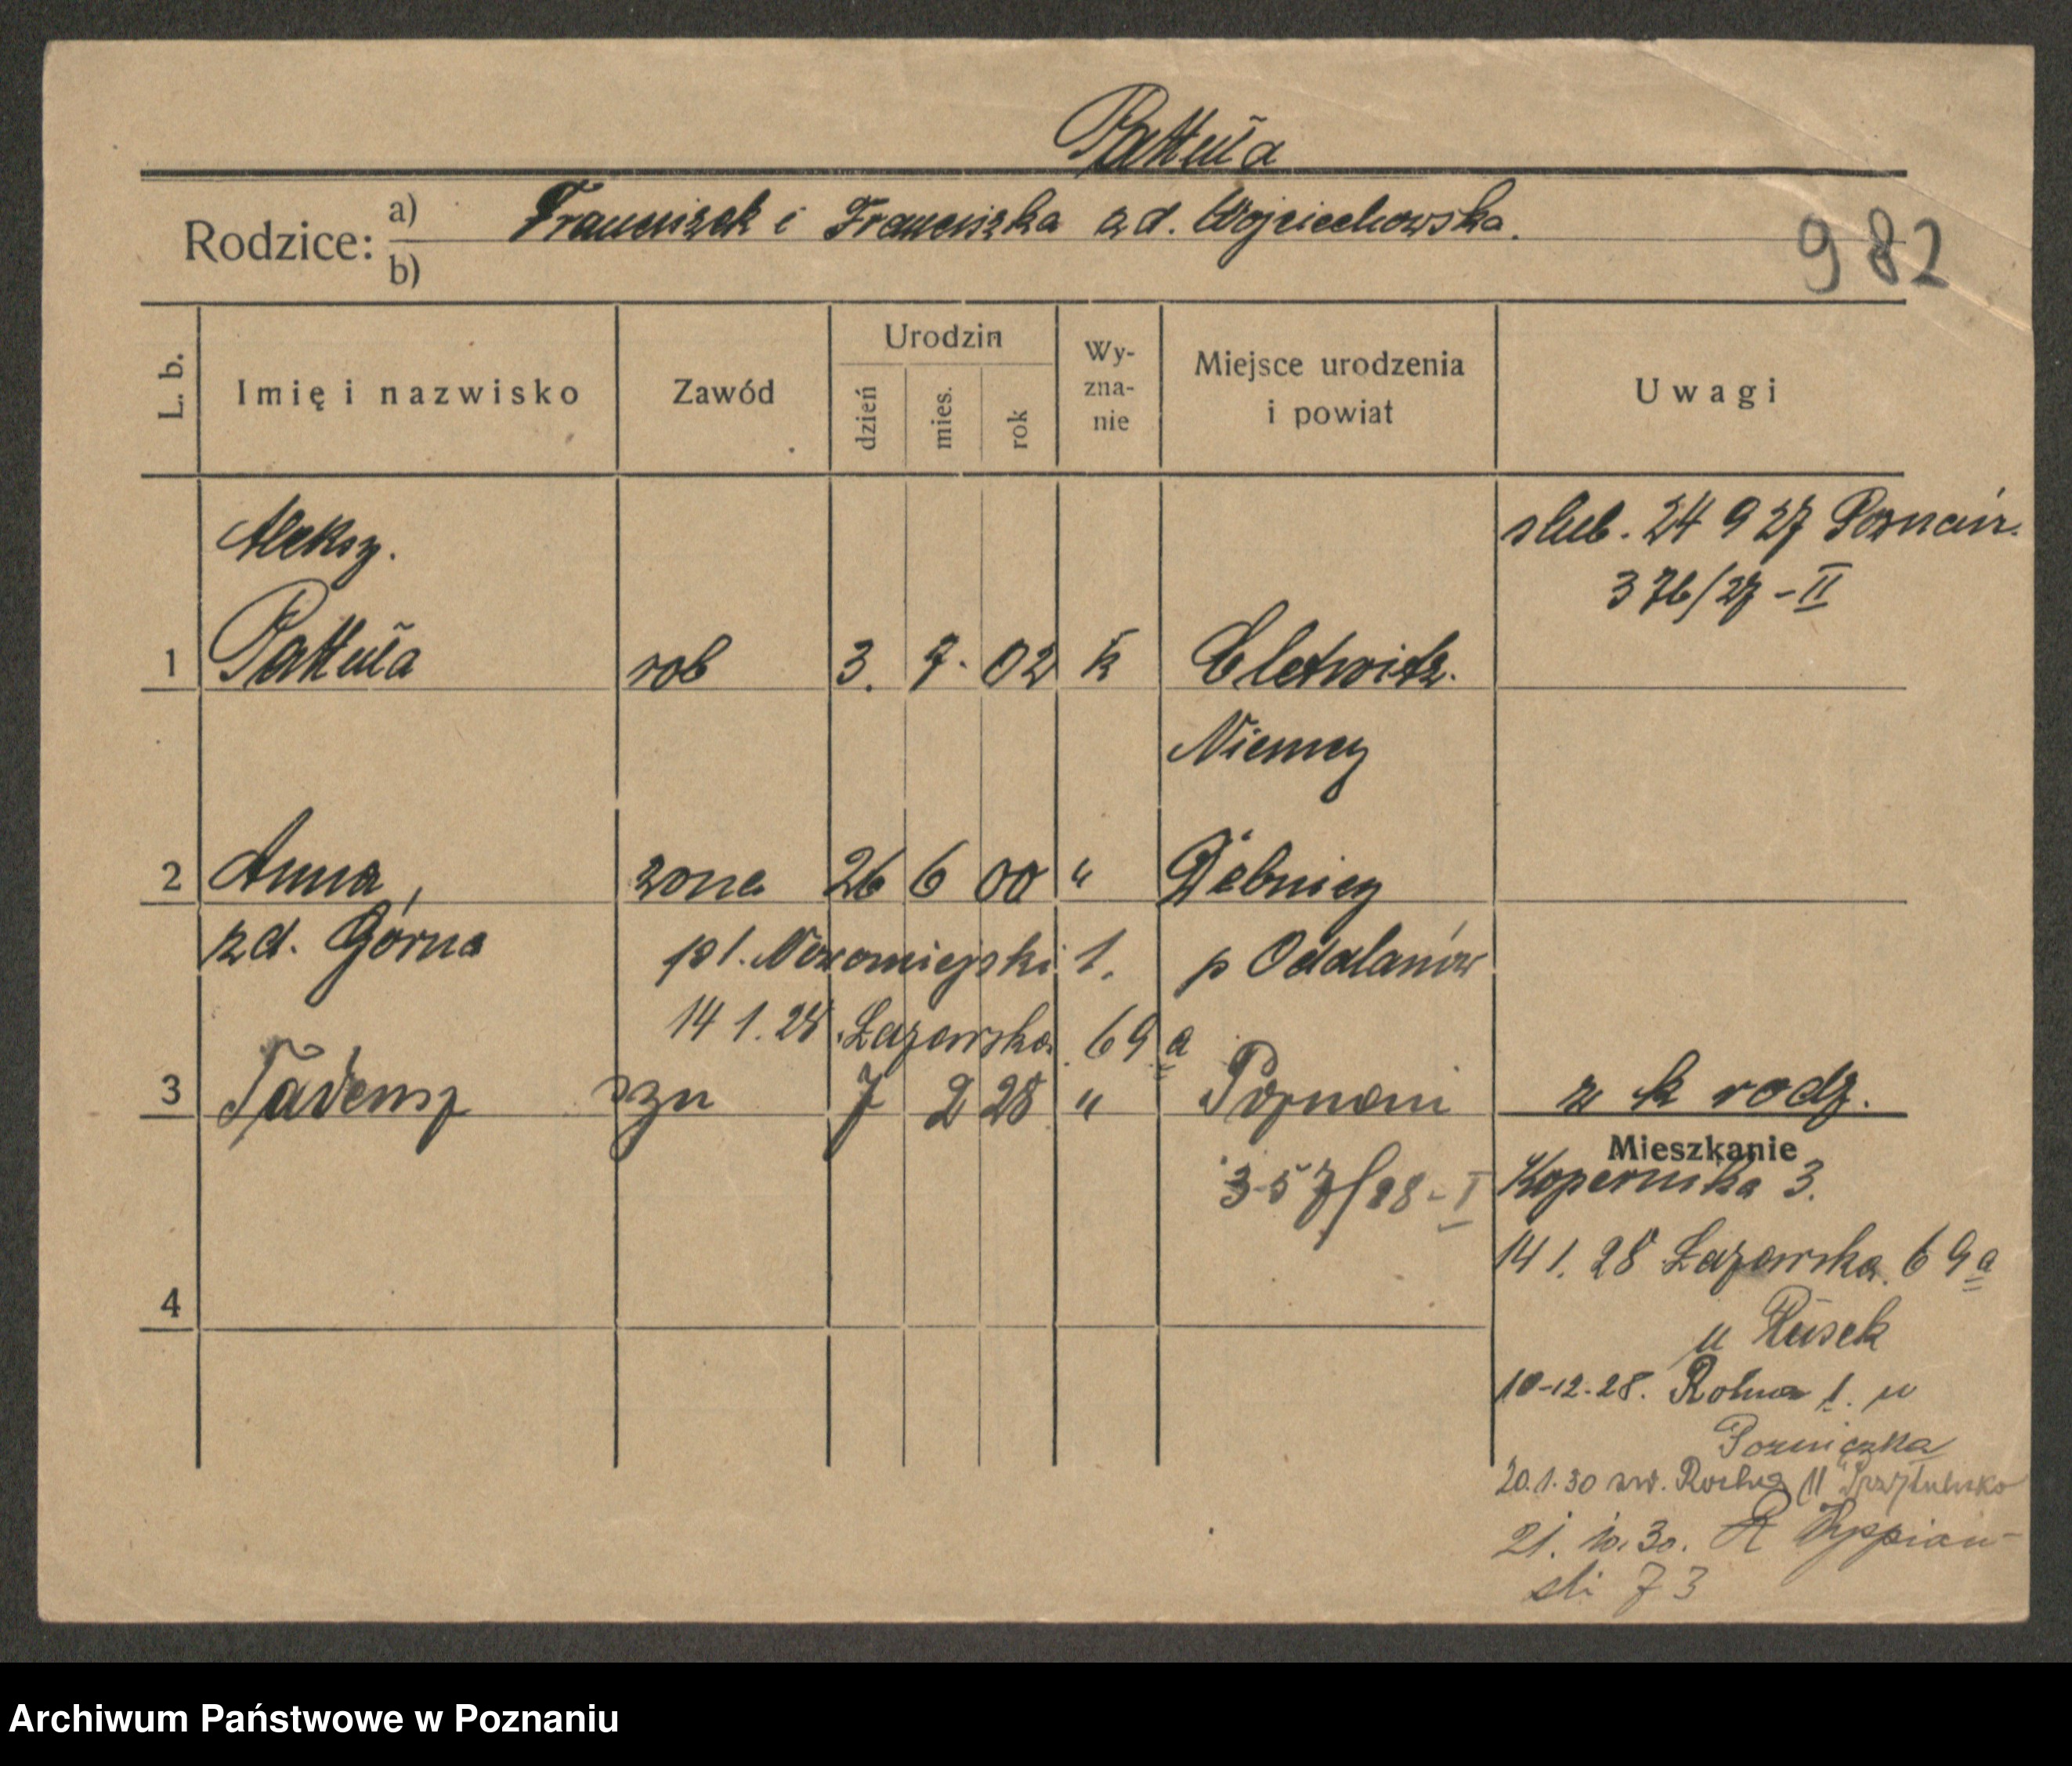 Pattuła
Rodzice: a) Franciszek i Franciszka zd. Wojciechowska.
b)
982
L. b.
Imię i nazwisko
Zawód
Urodzin
dzień
mies.
rok
Wy-
zna-
nie
Miejsce urodzenia
i powiat
Uwagi
Aleksy.
ślub. 24 9 27 Poznań.
376/27 - II
1 Pattuła rob 3. 7. 02 k
Niemcy
2 Anna, żona 26 6 00 " Dębnicy
zd. Górna pl. Nowomiejski 1. p Odolanów
14 1. 28 Łazarska 69a
3 Tadeusz syn 7 2 28 " Poznań z k rodz.
Mieszkanie
357/28 - I Kopernika 3.
14 1. 28 Łazarska. 69a
4
u
10-12-28. Rolna 1. u
20.1.30 św. Rocha 11 Przytulisko
21. 10. 30. Wyspian-
ski 73
Archiwum Państwowe w Poznaniu